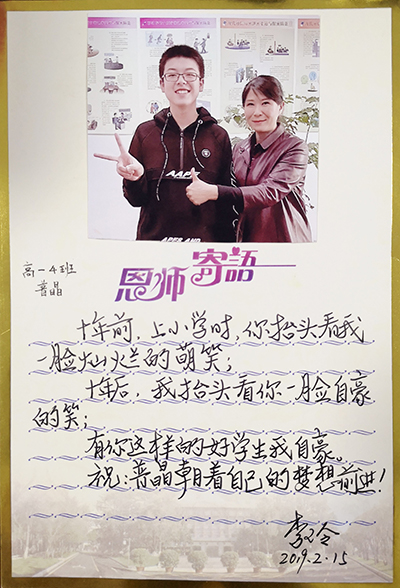 高一4班
普晶
恩师寄語
十年前,上小学时,你抬头看我
一脸灿烂的萌笑;
十年后,我抬头看你一脸自豪
的笑;
有你这样的好学生我自豪。
祝:普晶朝着自己的梦想前进!
2019.2.15